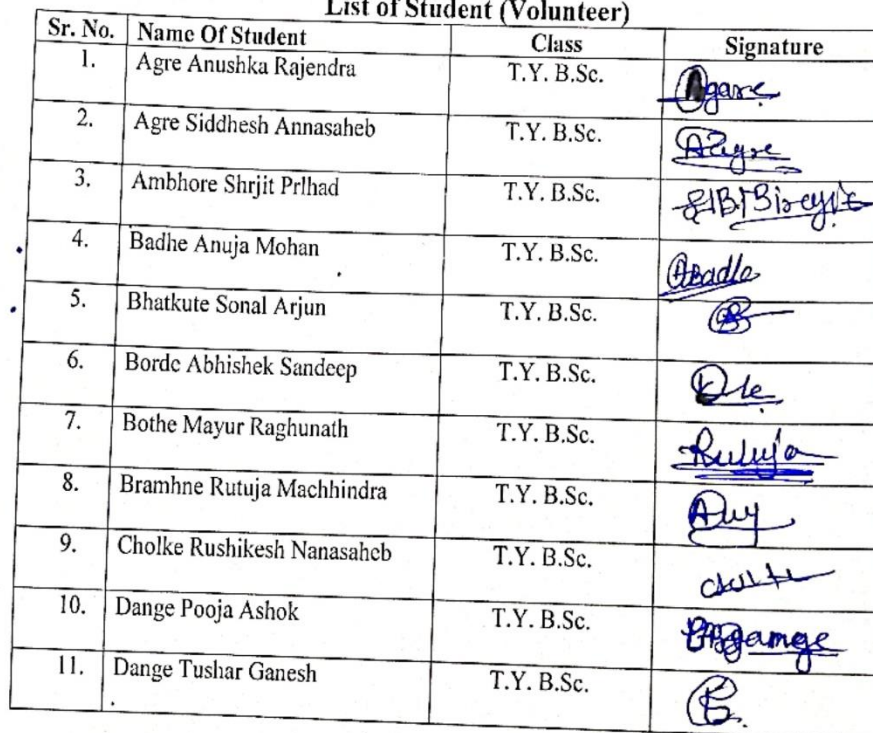 List of Student (Volunteer)
Sr. No. Name Of Student Class Signature
1. Agre Anushka Rajendra T.Y. B.Sc. Agare
2. Agre Siddhesh Annasaheb T.Y. B.Sc.
3. Ambhore Shrjit Prlhad T.Y. B.Sc.
4. Badhe Anuja Mohan T.Y. B.Sc. ABadhe
5. Bhatkute Sonal Arjun T.Y. B.Sc.
6. Borde Abhishek Sandeep T.Y. B.Sc.
7. Bothe Mayur Raghunath T.Y. B.Sc. Rutuja
8. Bramhne Rutuja Machhindra T.Y. B.Sc.
9. Cholke Rushikesh Nanasaheb T.Y. B.Sc.
10. Dange Pooja Ashok T.Y. B.Sc.
11. Dange Tushar Ganesh T.Y. B.Sc.